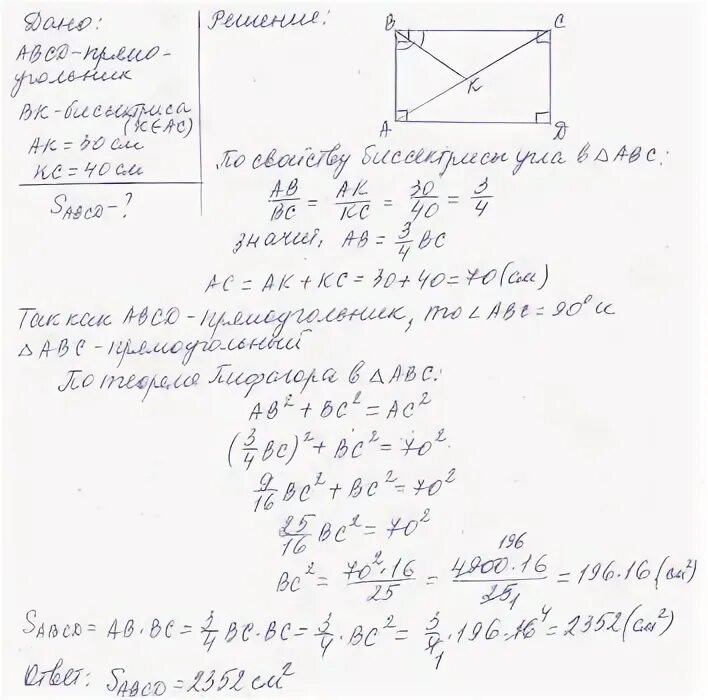 Дано:
ABCD-прямо-
угольник
BK-биссектриса
(K∈AC)
AK = 30 см
KC = 40 см
S_ABCD - ?
Решение:
B C
K
A D
По свойству биссектрисы угла в △ABC:
AB/BC = AK/KC = 30/40 = 3/4
значит, AB = 3/4 BC
AC = AK + KC = 30 + 40 = 70 (см)
Так как ABCD - прямоугольник, то ∠ABC = 90° и
△ABC - прямоугольный
По теореме Пифагора в △ABC:
AB² + BC² = AC²
(3/4 BC)² + BC² = 70²
9/16 BC² + BC² = 70²
25/16 BC² = 70²
BC² = 70²·16/25 = 4900·16/25 = 196·16 (см²)
196
1
S_ABCD = AB·BC = 3/4 BC·BC = 3/4·BC² = 3/4·196·16 = 2352 (см²)
4
1
Ответ: S_ABCD = 2352 см²